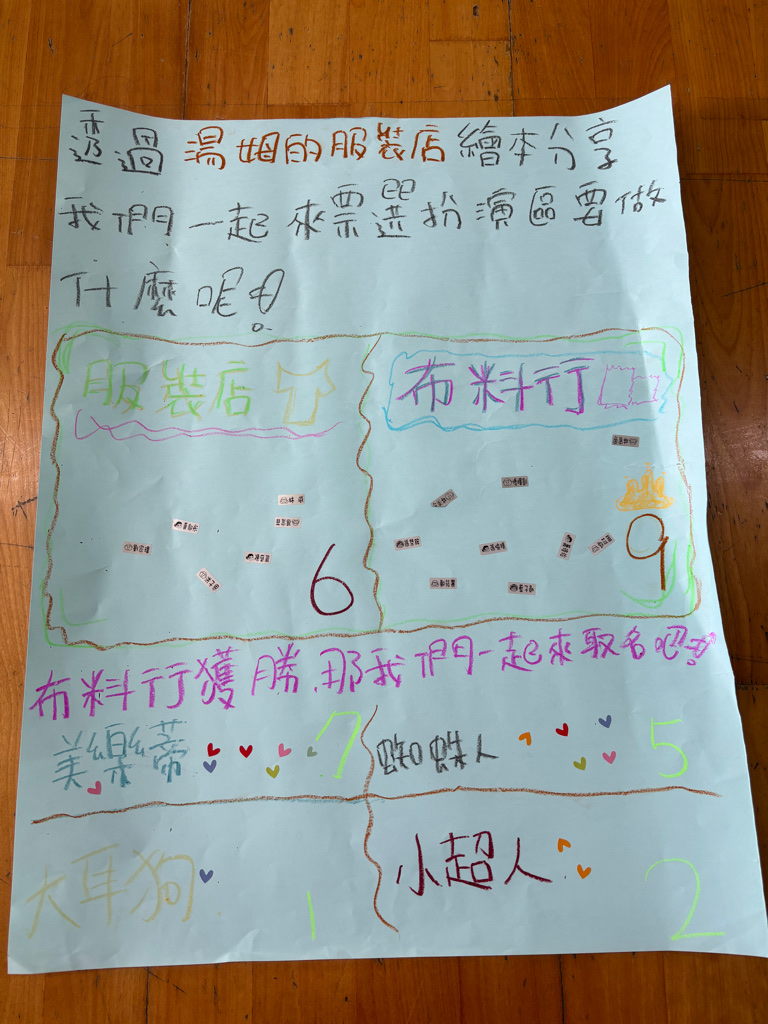 透過 湯姆的服裝店 繪本分享
我們一起來票選扮演區要做
什麼呢!
服裝店
布料行
6
9
布料行獲勝,那我們一起來取名吧!
美樂蒂 7
蜘蛛人 5
大耳狗 1
小超人 2